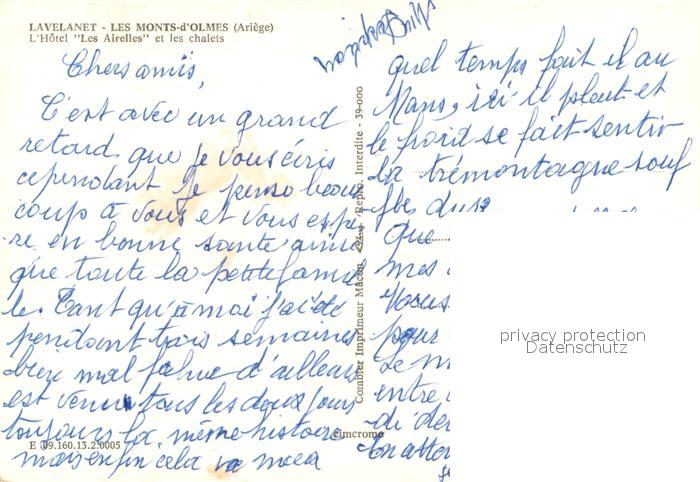 LAVELANET - LES MONTS-d'OLMES (Ariège)
L'Hôtel "Les Airelles" et les chalets
Chers amis,
C'est avec un grand
retard que je vous écris
cependant je pense beau
coup à vous et vous espè
re en bonne santé ainsi
que toute la petite famil
le. Tant qu'à moi j'ai été
pendant trois semaines
bien mal fichue d'ailleurs
est venu tous les deux jours
toujours la même histoire
mais enfin cela va mieux
E 09.160.13.2.0005
cimcrome
Combier Imprimeur Mâcon Repro. Interdite - 39-000
quel temps fait il au
Mans, ici il pleut et
le froid se fait sentir
la trémontagne souf
fle dur
que
mes
Vous
pour
Le m
entre
di de
En atten
privacy protection
Datenschutz